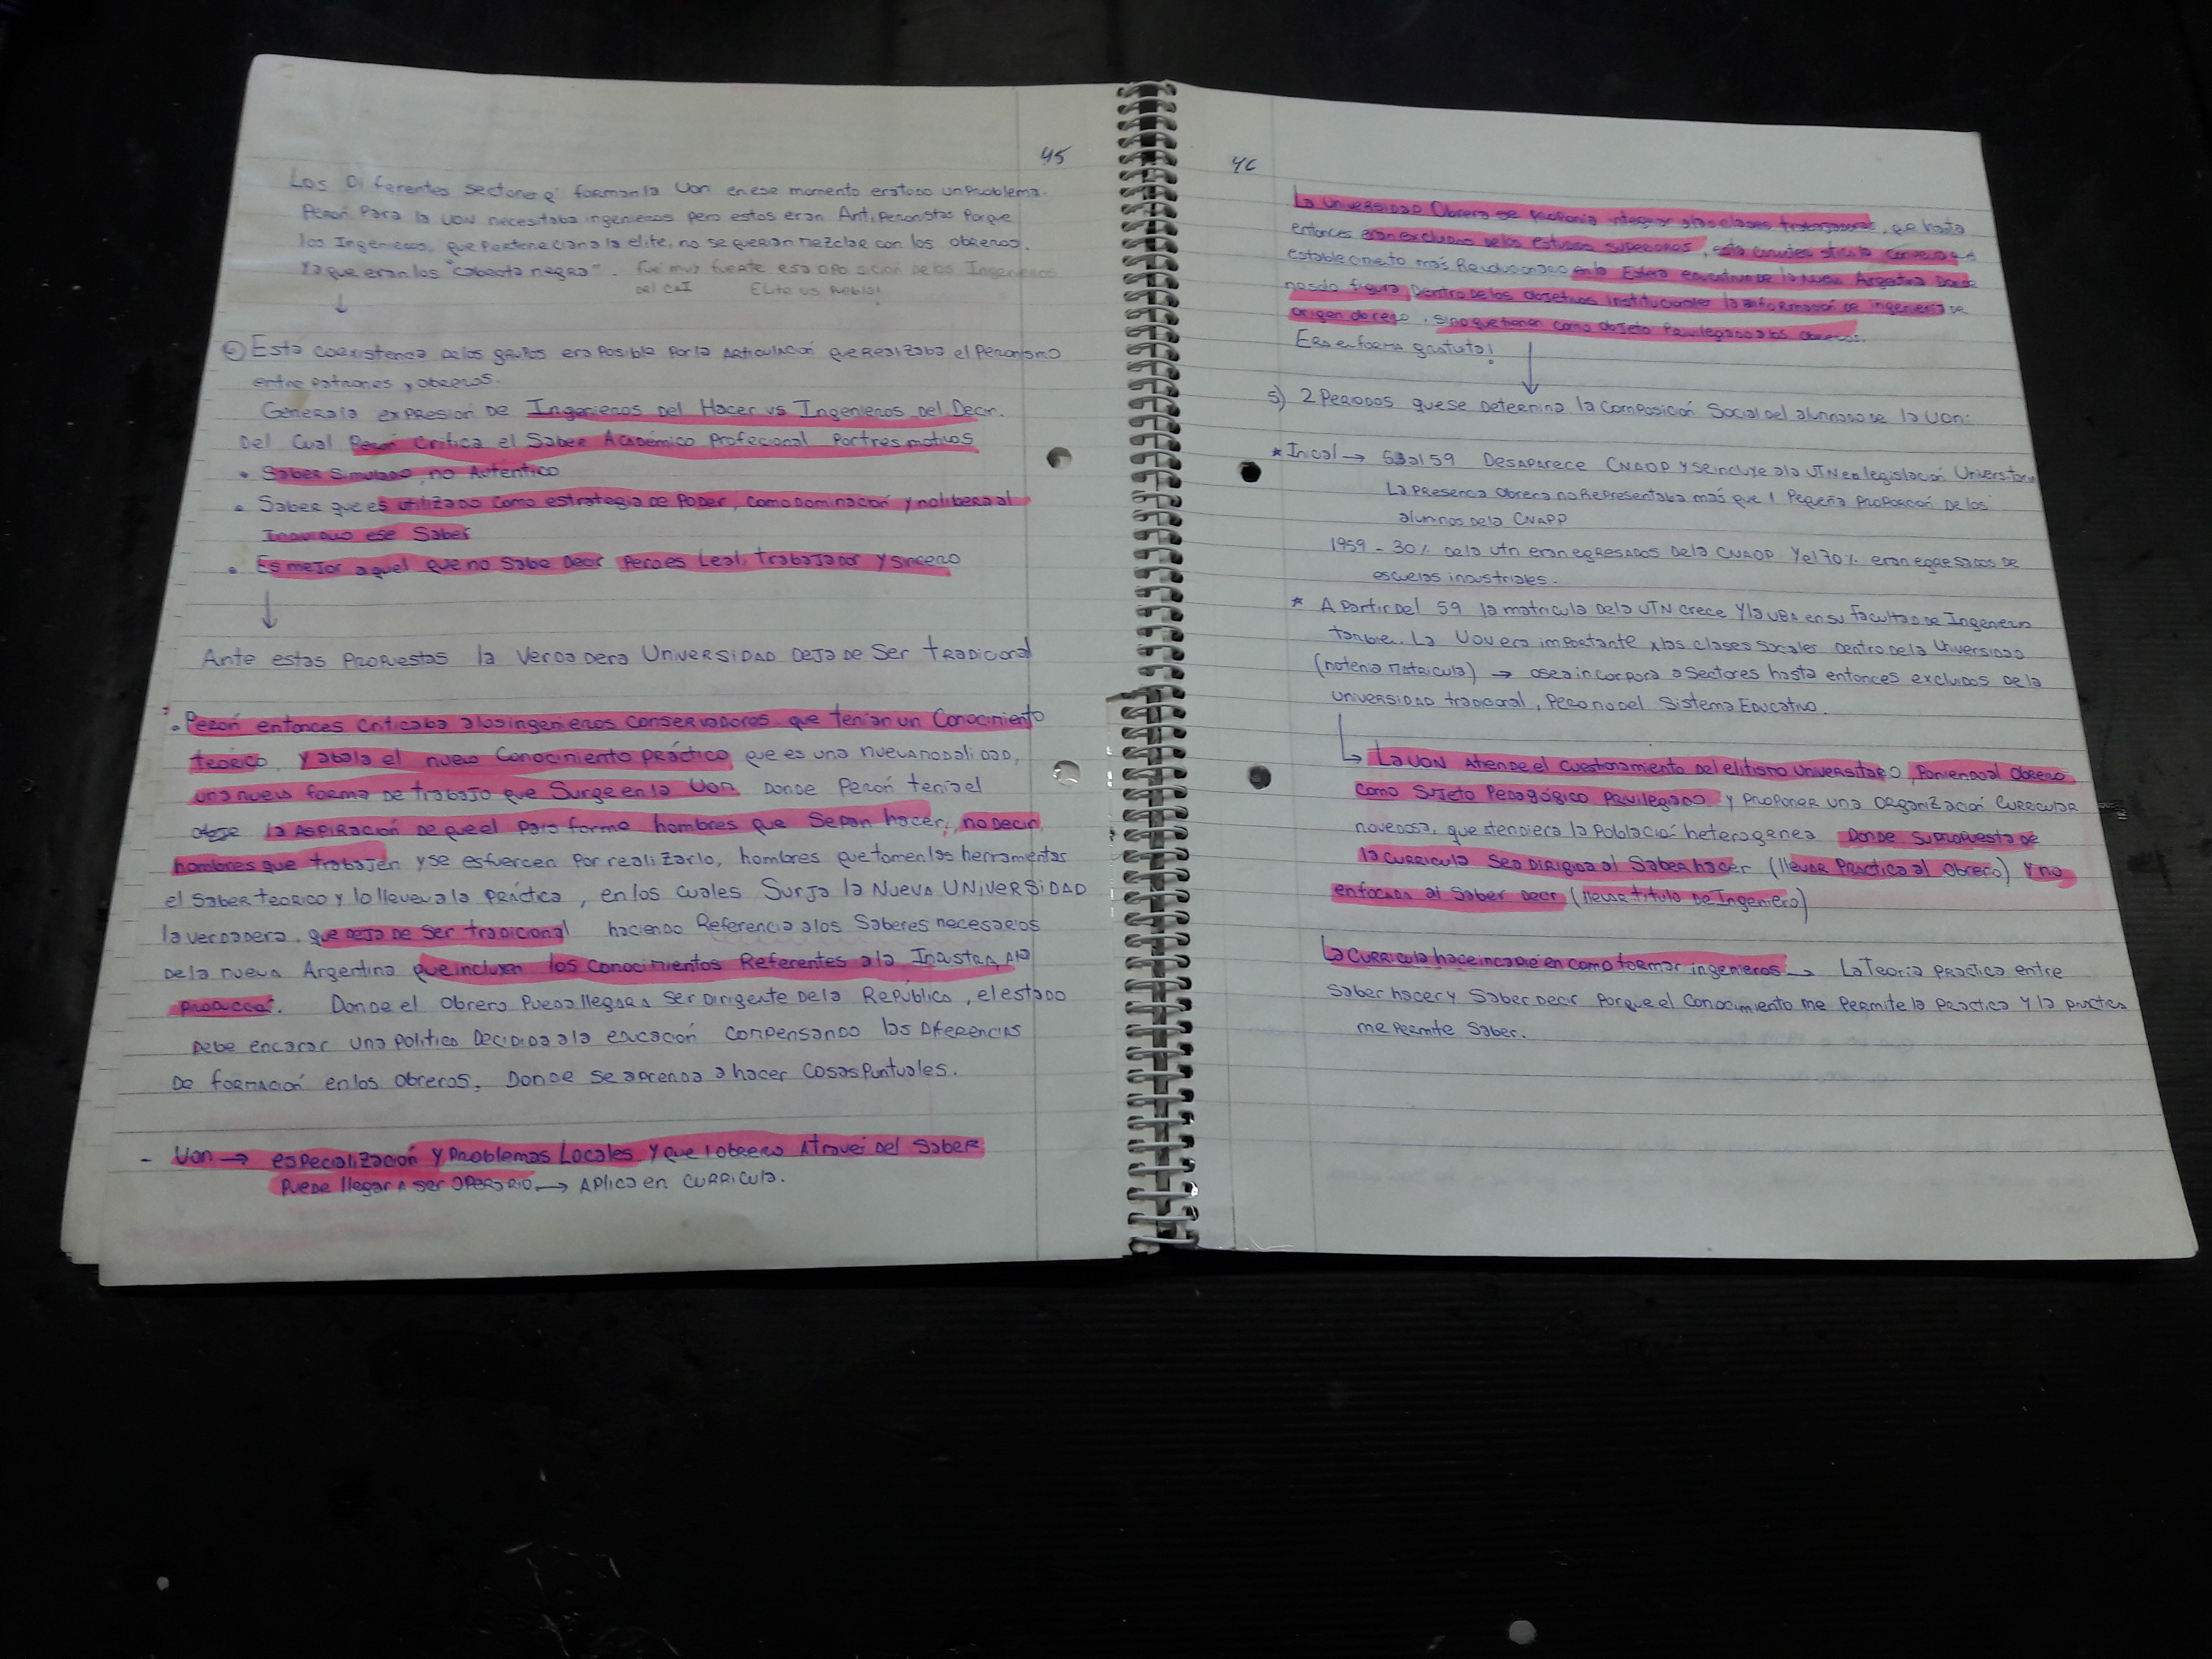 45
Los Diferentes sectore q' forman la Uon en ese momento era todo un problema.
Perón Para la UON necesitaba ingenieros pero estos eran Antiperonistas Porque
los Ingenieros, que pertenecian a la elite, no se querian mezclar con los obreros.
Ya que eran los "cabecita negra". fue muy fuerte esa oposición de los Ingenieros
del CAI Elite vs Pueblo!
↓
Esta coexistencia de los grupos era posible por la articulación que Realizaba el Peronismo
entre patrones y obreros.
Genera la expresión de Ingenieros del Hacer vs Ingenieros del Decir.
Del Cual Perón Critica el Saber Académico Profecional Por tres motivos
• Saber Simulado, no Auténtico
• Saber que es utilizado como estrategia de Poder, como dominación y no libera al
Individuo ese Saber
• Es mejor aquel que no Sabe Decir Pero es Leal, trabajador y sincero
↓
Ante estas Propuestas la Verdadera Universidad deja de Ser tradicional
• Perón entonces Criticaba a los ingenieros conservadores que tenian un Conocimiento
teórico, y abala el nuevo Conocimiento práctico que es una nueva modalidad,
una nueva forma de trabajo que Surge en la Uon. Donde Perón tenia el
la Aspiración de que el pais forme hombres que Sepan hacer, no decir,
hombres que trabajen y se esfuercen por realizarlo, hombres que tomen las herramientas
el Saber teorico y lo lleven a la práctica, en los cuales Surja la Nueva UNIVERSIDAD
la verdadera, que deja de Ser tradicional haciendo Referencia a los Saberes necesarios
de la nueva Argentina que incluyen los conocimientos Referentes a la Industria, a la
producción. Donde el Obrero Pueda llegar a Ser Dirigente de la República, el estado
debe encarar una politica Decidida a la educación compensando las Diferencias
De formación en los obreros. Donde se aprenda a hacer Cosas Puntuales.
- Uon → especialización y Problemas Locales y que l obrero Através del Saber
Puede llegar a ser operario → Aplica en curricula.
46
La Universidad Obrera se proponía integrar a las clases trabajadoras, que hasta
entonces eran excluidas de los estudios superiores,
establecimiento más Revolucionario en la Esfera educativa de la nueva Argentina Donde
no solo figura Dentro de los objetivos institucionales la formación de ingenieros de
origen obrero, sino que tienen como objeto Privilegiado a los obreros.
Era en forma gratuita!
↓
5) 2 Periodos que se Determina la Composición Social del alumnado de la Uon:
* Inicial → 53 al 59 Desaparece CNAOP y se incluye a la UTN en legislación Universitaria
La presencia Obrera no Representaba más que 1 Pequeña Proporción de los
alumnos de la CNAPP
1959 - 30% de la Utn eran egresados de la CNAOP y el 70% eran egresados de
escuelas industriales.
* A partir del 59 la matricula de la UTN crece y la UBA en su facultad de Ingenieria
tambien. La Uon era importante x las clases sociales dentro de la Universidad
(no tenia Matricula) → o sea incorpora a Sectores hasta entonces excluidos de la
universidad tradicional, Pero no del Sistema Educativo.
↳ La UON Atiende el cuestionamiento del elitismo Universitario, Poniendo al Obrero
como Sujeto Pedagógico Privilegiado y proponer una organización Curricular
novedosa, que atendiera la población heterogenea Donde su propuesta de
la curricula sea dirigida al Saber hacer (llevar Practica al Obrero) y no
enfocada al Saber Decir (llevar titulo De Ingeniero)
La Curricula hace incapié en como formar ingenieros → La Teoria practica entre
Saber hacer y Saber decir Porque el Conocimiento me Permite la practica y la practica
me Permite Saber.